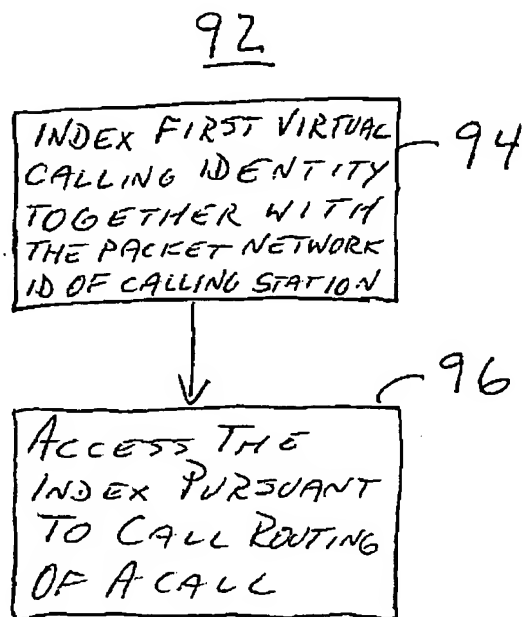 92
INDEX FIRST VIRTUAL
CALLING IDENTITY
TOGETHER WITH
THE PACKET NETWORK
ID OF CALLING STATION
94
96
ACCESS THE
INDEX PURSUANT
TO CALL ROUTING
OF A CALL